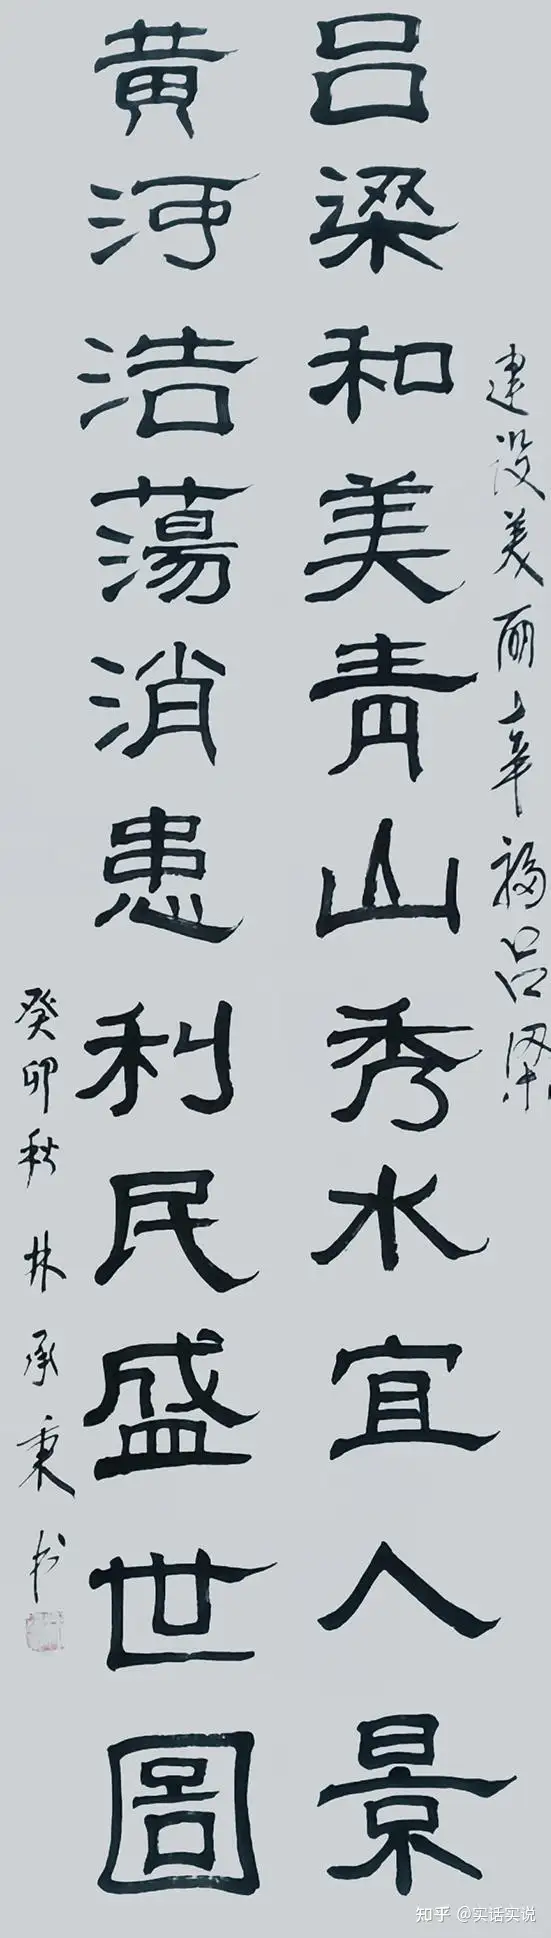 建设美丽幸福吕梁
吕梁和美青山秀水宜人景
黄河浩蕩消患利民盛世圖
癸卯秋 林承秉书
知乎 @实话实说